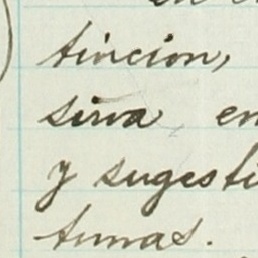 en
tincion,
sirva en
y sugesti
tumas.